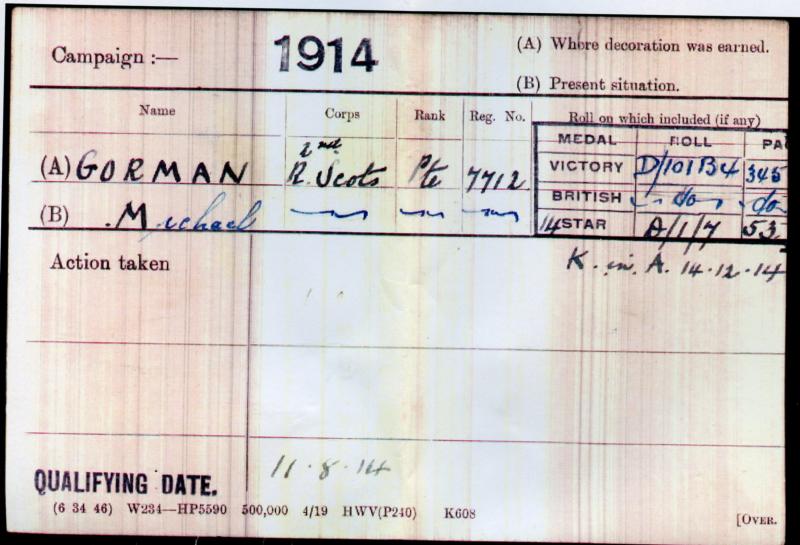 Campaign :— 1914 (A) Where decoration was earned.
(B) Present situation.
Name Corps Rank Reg. No. Roll on which included (if any)
MEDAL ROLL PA
(A) GORMAN 2nd R. Scots Pte 7712 VICTORY D/101B4 345
(B) Michael BRITISH do do
14 STAR A/1/7 53
Action taken K. in. A. 14.12.14
QUALIFYING DATE. 11.8.14
(6 34 46) W234—HP5590 500,000 4/19 HWV(P240) K608
[OVER.